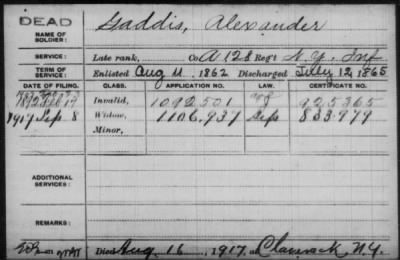 DEAD
NAME OF SOLDIER:
Gaddis, Alexander
SERVICE:
Late rank, Co A 128 Reg't N.Y. Inf
TERM OF SERVICE:
Enlisted Aug 11, 1862 Discharged July 12, 1865
DATE OF FILING. CLASS. APPLICATION NO. LAW. CERTIFICATE NO.
Invalid, 1092.501 925365
1917 Sep 8 Widow, 1106.937 Sep 833.979
Minor,
ADDITIONAL SERVICES:
REMARKS:
Died Aug. 16, 1917, at Claverack, N.Y.